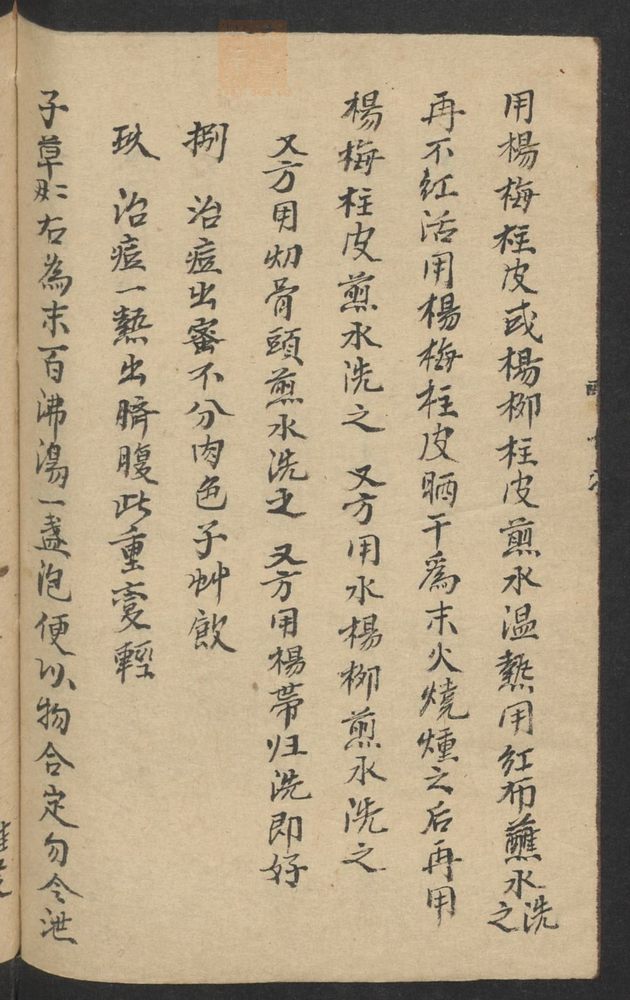 用楊梅柱皮或楊柳柱皮煎水温熱用紅布蘸水洗之
再不紅活用楊梅柱皮晒干為末火燒燻之后再用
楊梅柱皮煎水洗之 又方用水楊柳煎水洗之
又方用刧骨頭煎水洗之 又方用楊帶归洗即好
捌 治痘出蜜不分肉色子艸飲
玖 治痘一熱出臍腹此重变輕
子草 右為末百沸湯一盞泡便以物合定勿令泄